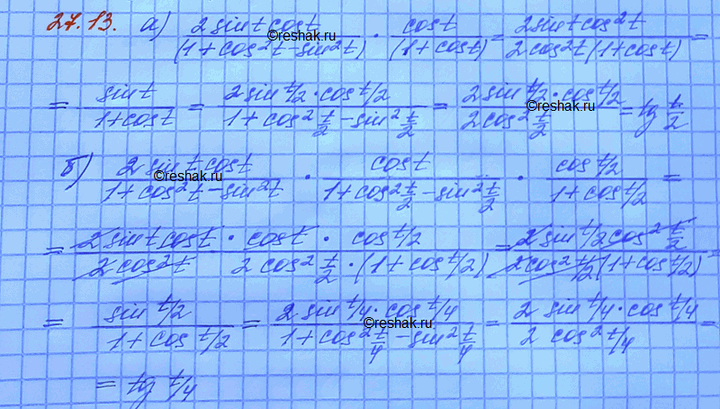 27.13. а) (2 sin t cos t)/(1+cos²t−sin²t) · cos t/(1+cos t) = (2 sin t cos²t)/(2 cos²t (1+cos t)) =
= sin t/(1+cos t) = (2 sin t/2 · cos t/2)/(1+cos² t/2 − sin² t/2) = (2 sin t/2 · cos t/2)/(2 cos² t/2) = tg t/2
б) (2 sin t cos t)/(1+cos²t−sin²t) · cos t/(1+cos² t/2 − sin² t/2) · cos t/2/(1+cos t/2) =
= (2 sin t cos t · cos t · cos t/2)/(2 cos²t 2 cos² t/2 · (1+cos t/2)) = (2 sin t/2 cos² t/2)/(2 cos² t/2 (1+cos t/2))
= sin t/2/(1+cos t/2) = (2 sin t/4 · cos t/4)/(1+cos² t/4 − sin² t/4) = (2 sin t/4 · cos t/4)/(2 cos² t/4) =
= tg t/4
©reshak.ru
©reshak.ru
©reshak.ru
©reshak.ru